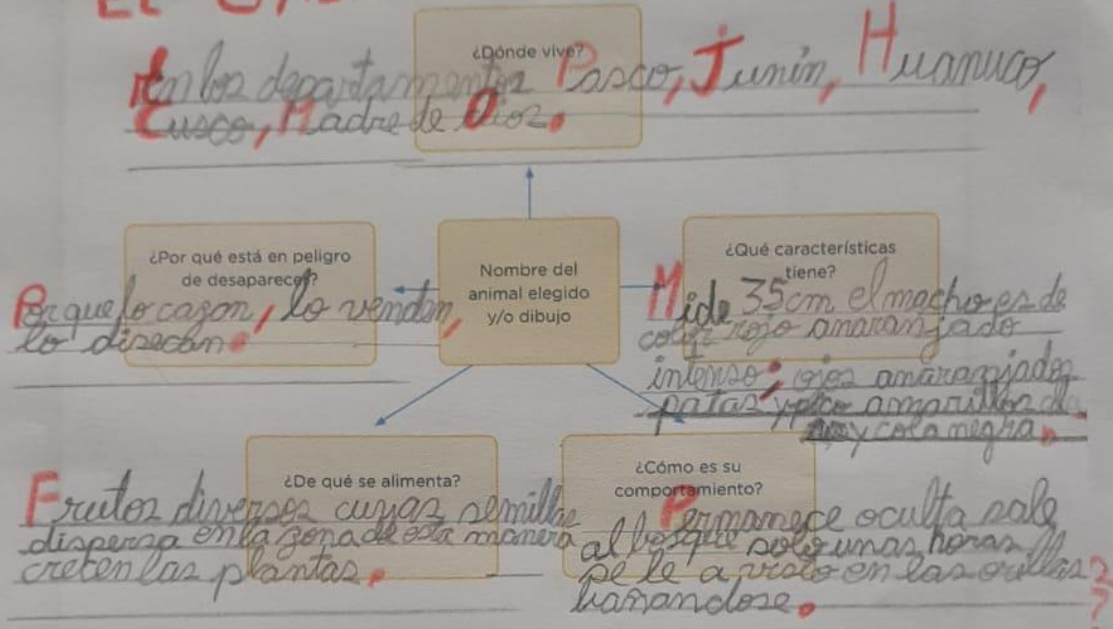 EL
¿Dónde vive?
En los departamentos Pasco, Junin, Huanuco,
Cusco, Madre de Dios.
¿Por qué está en peligro
de desaparecer?
Porque lo cazan, lo venden,
lo disecan.
Nombre del
animal elegido
y/o dibujo
¿Qué características
tiene?
Mide 35cm el macho es de
color rojo anaranjado
intenso; ojos anaranjados
patas y pico amarillos
y cola negra.
¿De qué se alimenta?
Frutos diversos cuyas semillas
dispersa en la zona de esta manera
crecen las plantas.
¿Cómo es su
comportamiento?
Permanece oculta sale
al bosque solo unas horas
se le a visto en las orillas
bañandose.